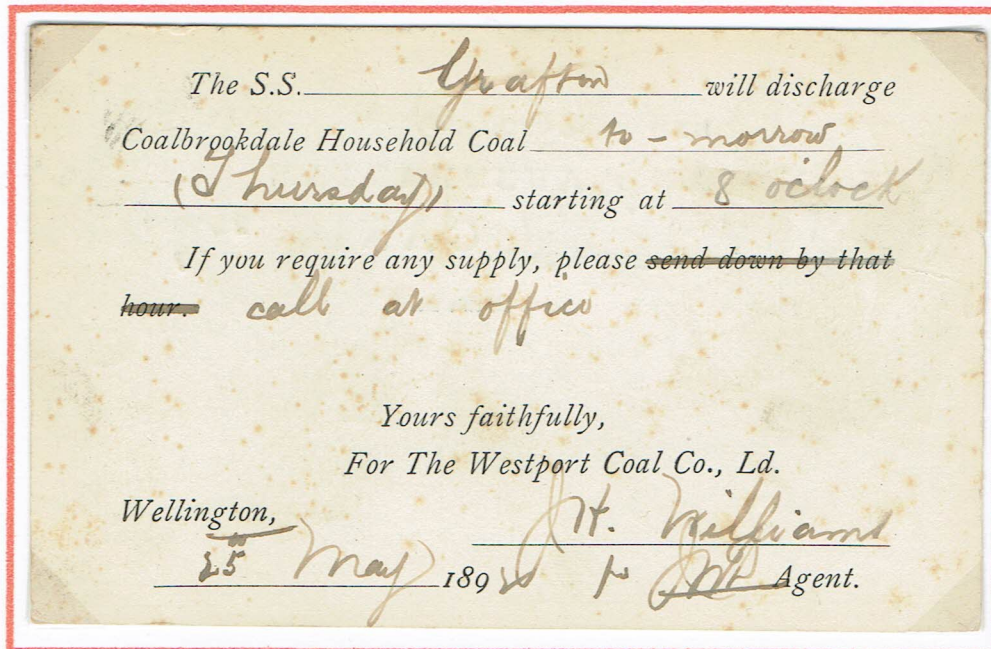 The S.S. Grafton will discharge
Coalbrookdale Household Coal to-morrow
(Thursday) starting at 8 oclock
If you require any supply, please send down by that
hour. call at office
Yours faithfully,
For The Westport Coal Co., Ld.
Wellington, H. Williams
25th May 189 Agent.